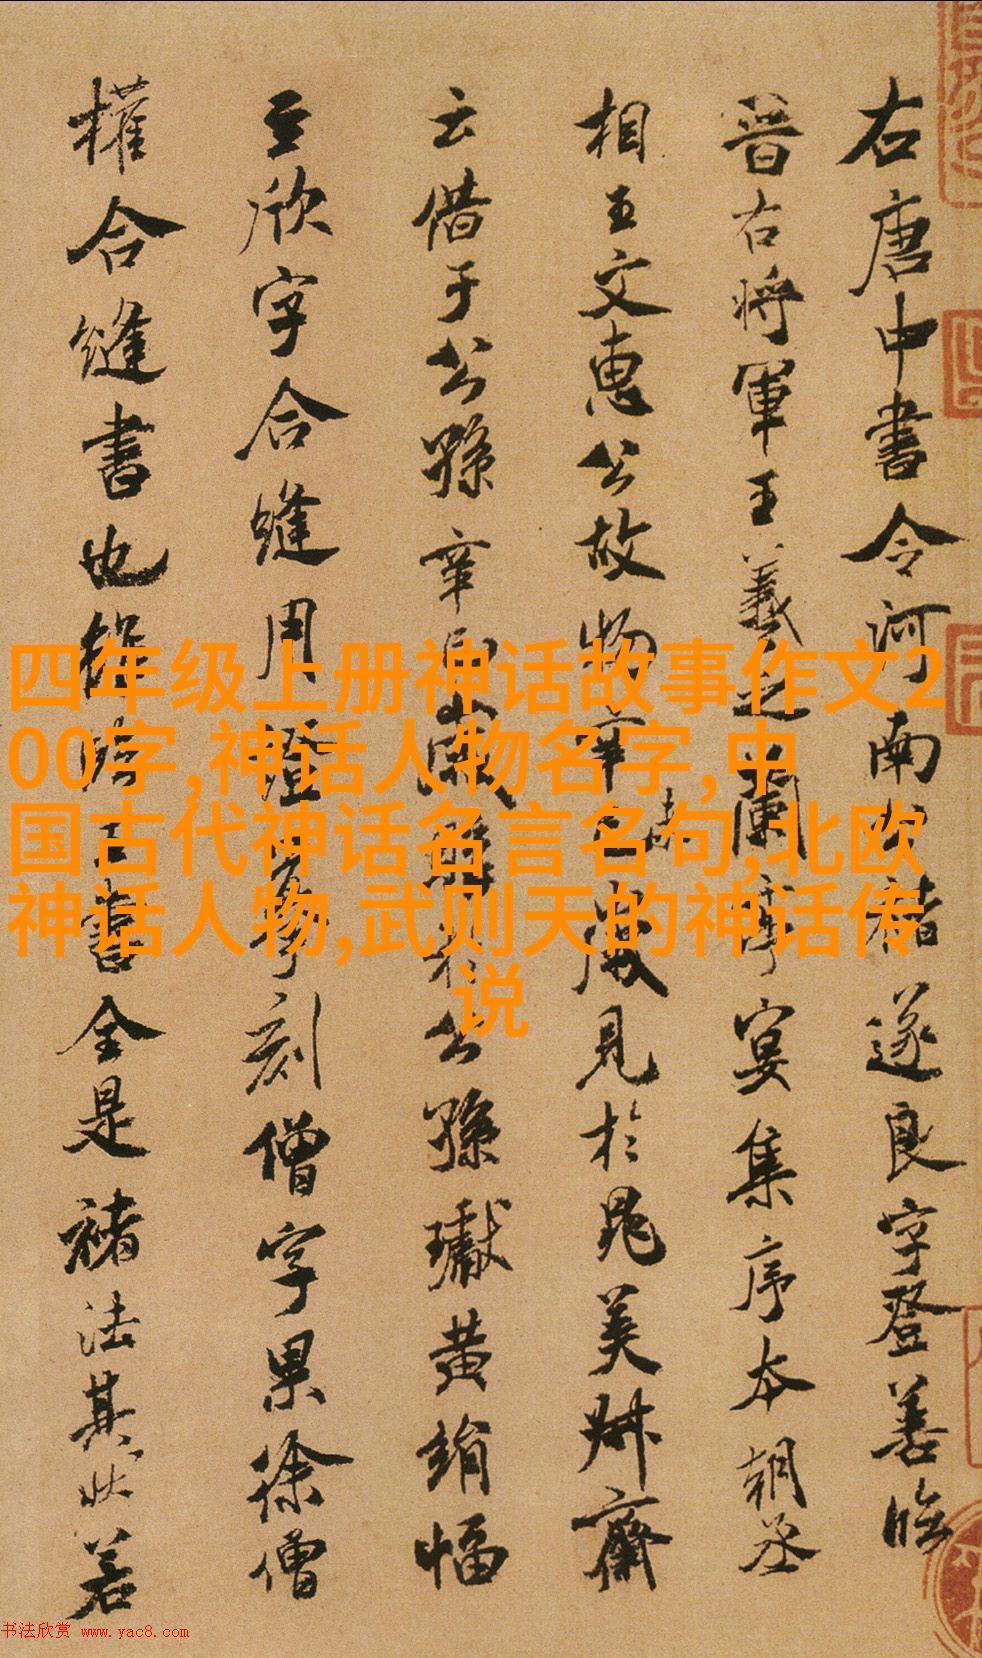 右唐中書令河南公褚遂良字登善臨
晉右將軍王羲之蘭亭宴集序本朝丞
相王文惠公故物辛卯歲見於晁美叔齋
云借于公孫辛
公孫瓛黃絹幅
至欣字合縫用
刻僧字果徐僧
權合縫書也
書全是褚法其狀若
四年级上册神话故事作文2
00字,神话人物名字,中
国古代神话名言名句,北欧
神话人物,武则天的神话传
说
书法欣赏 www.yac8.com